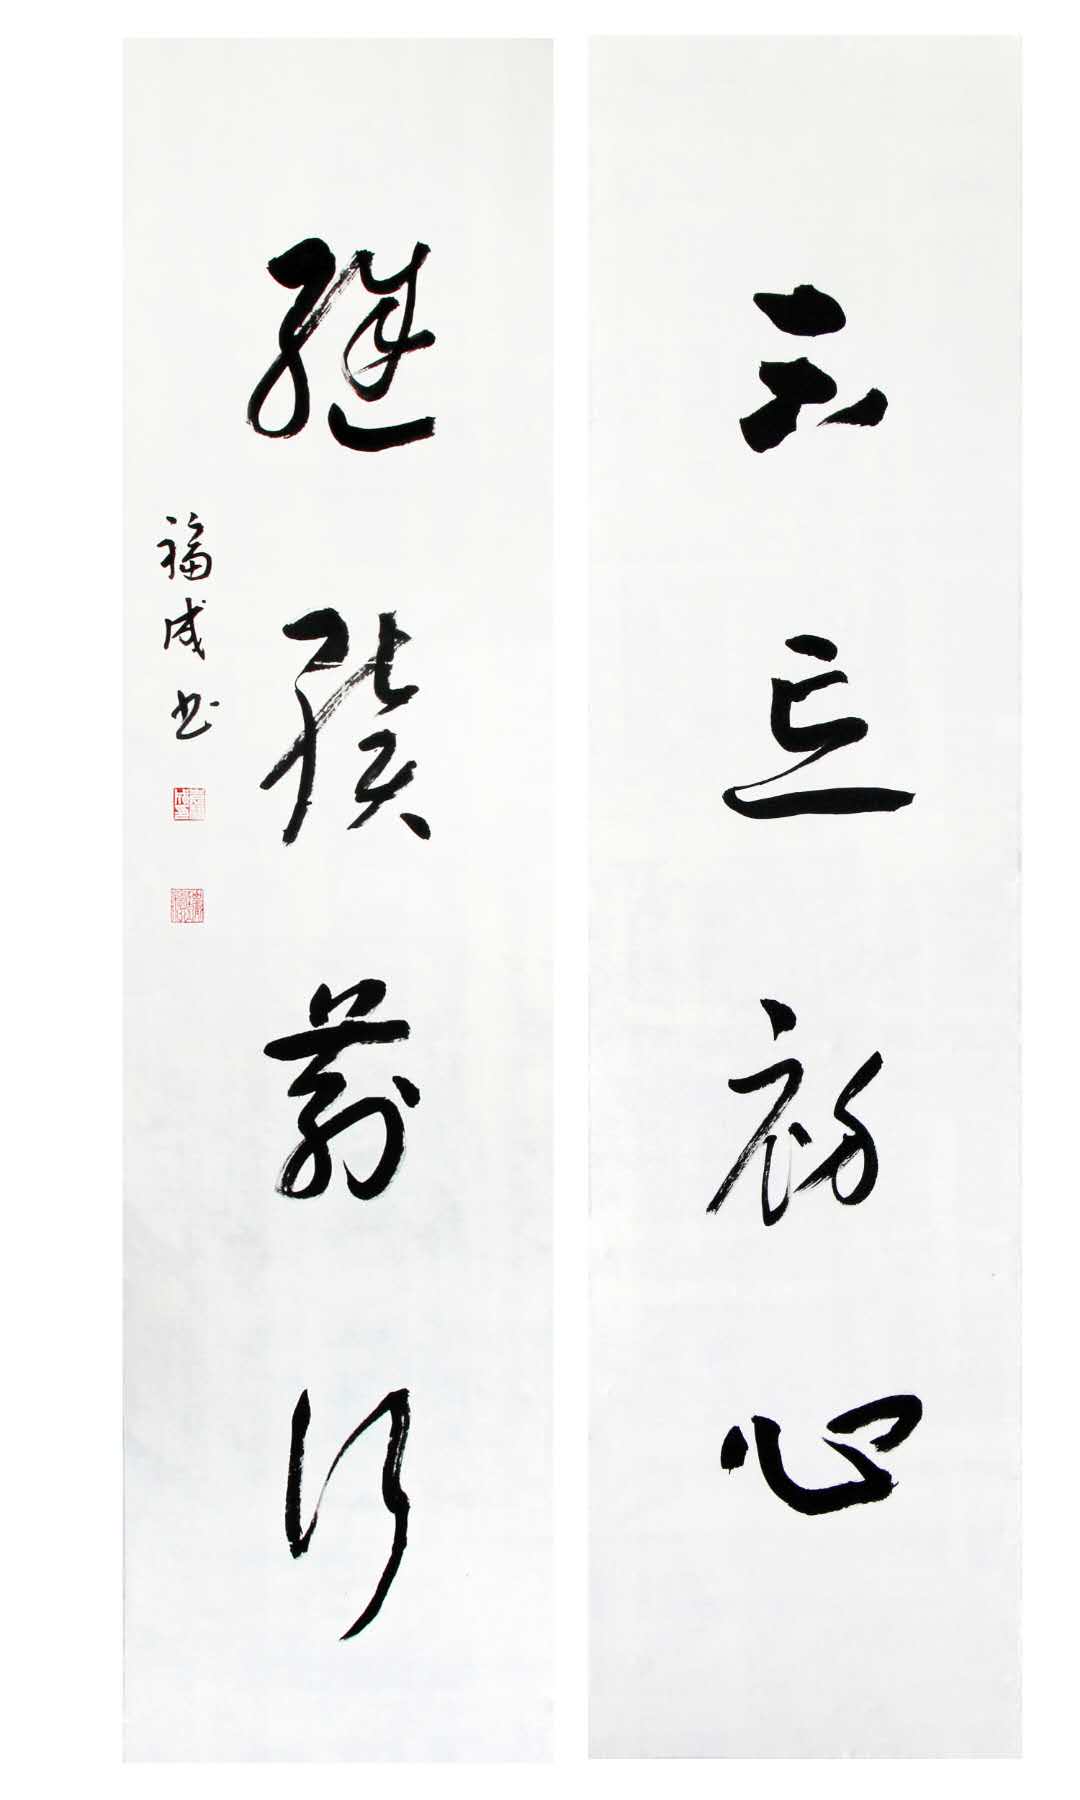 不忘初心
继续前行
福成书